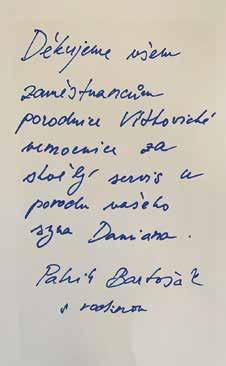 Děkujeme všem
zaměstnancům
porodnice Vítkovické
nemocnice za
skvělý servis u
porodu našeho
syna Damiana.
Patrik Bartošák
s rodinou